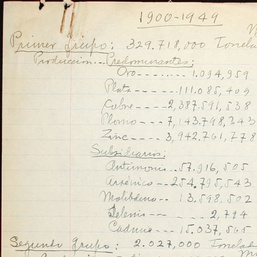 1900-1949
Primer Grupo: 329.718,000 Tonela
Producción... Predominantes:
Oro-------- 1.094,959
Plata----- 111.085,409
Cobre---- 2,387,591,538
Plomo--- 7,143,798,343
Zinc---- 3,942,761,778
Subsidiarios:
Antimonio-- 57.916,505
Arsénico-- 254,795,543
Molibdeno-- 13,598,502
Selenio--- 2,794
Cadmio--- 15.037,565
Segundo grupo: 2.027,000 Tonelad